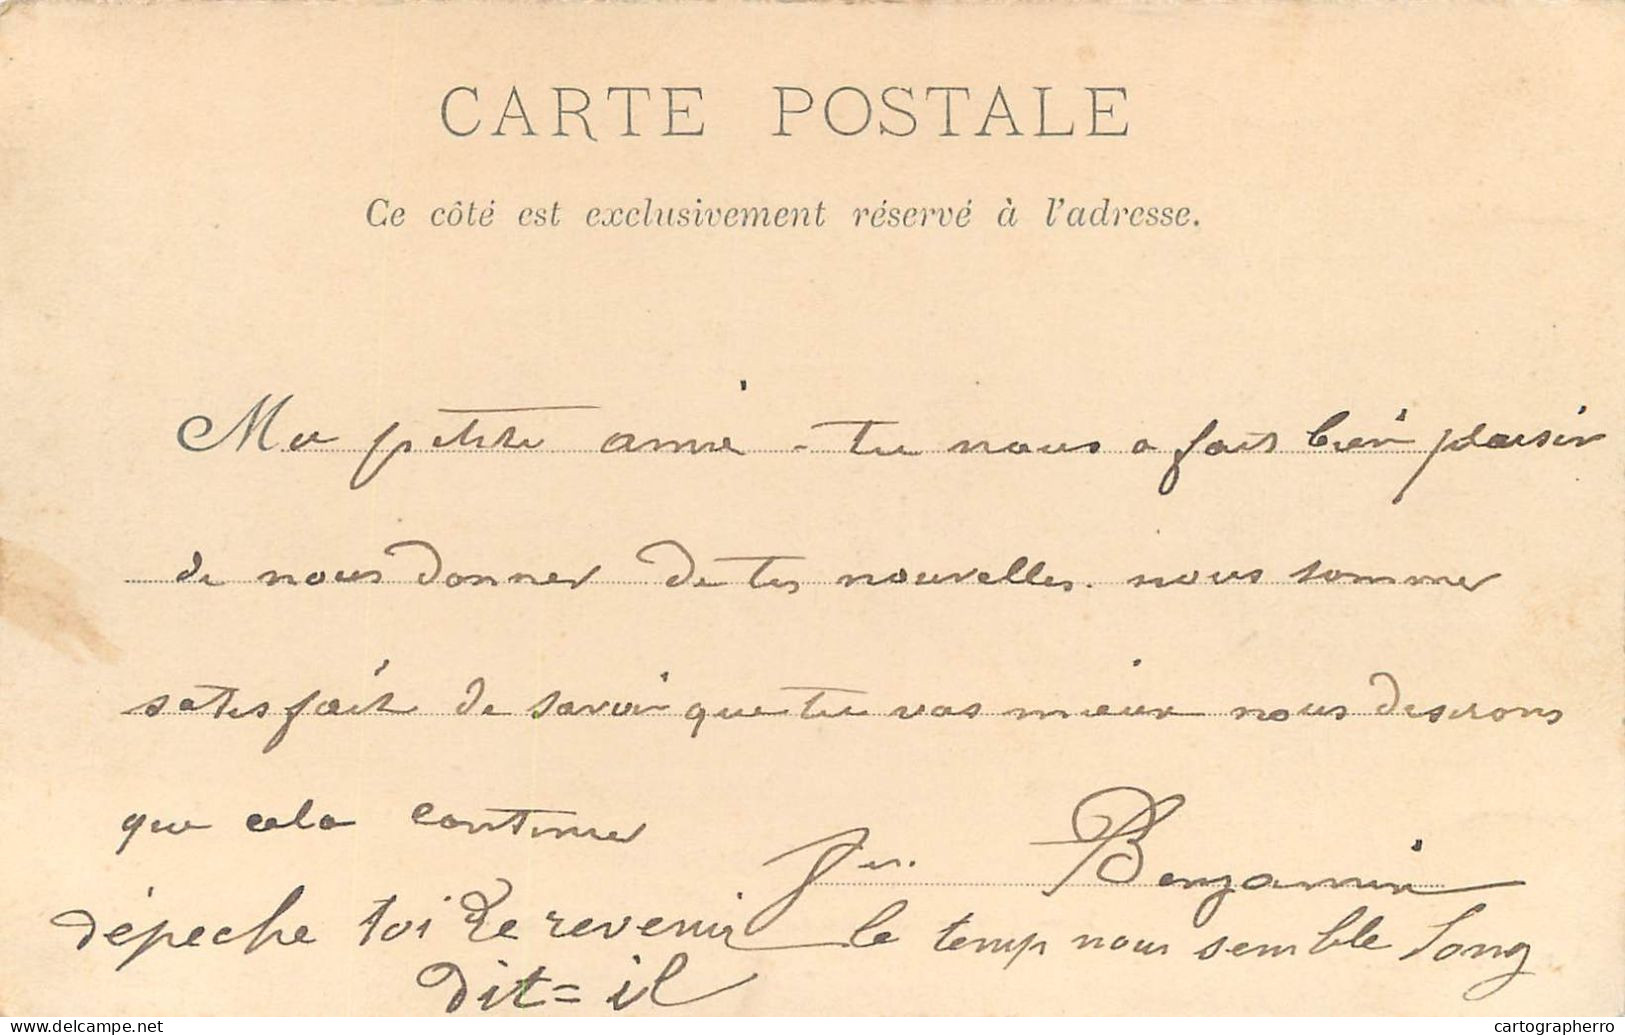 CARTE POSTALE
Ce côté est exclusivement réservé à l'adresse.
Ma petite amie - tu nous a fait bien plaisir
de nous donner de tes nouvelles. nous sommes
satisfait de savoir que tu vas mieux nous desirons
que cela continue
Benjamin
dépeche toi de revenir le temp nous semble long
dit=il
cartographerro